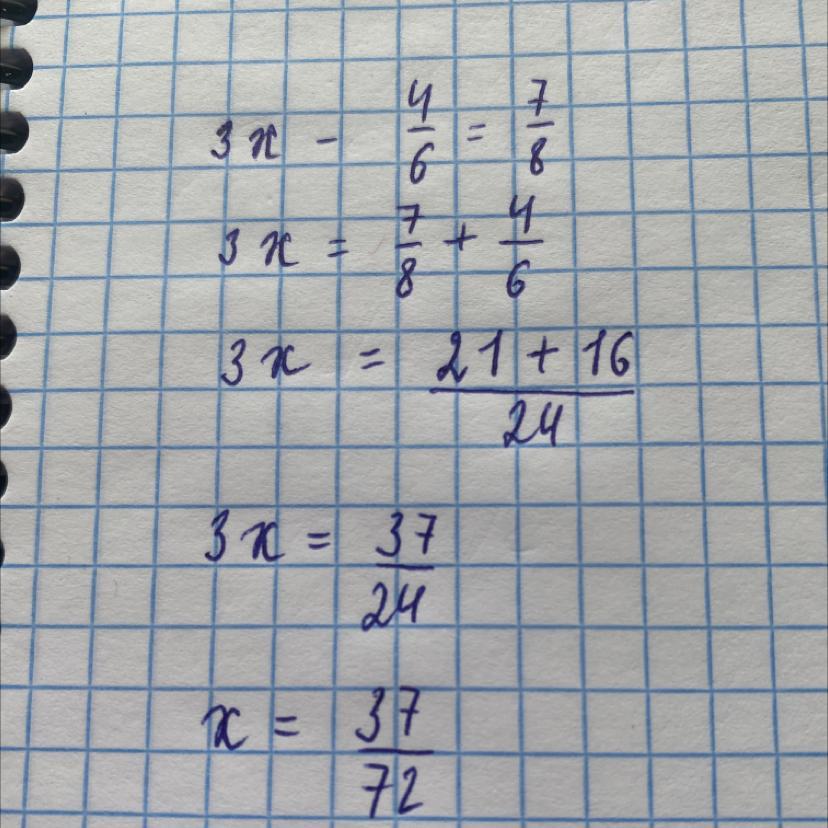 3x - 4/6 = 7/8
3x = 7/8 + 4/6
3x = (21 + 16)/24
3x = 37/24
x = 37/72